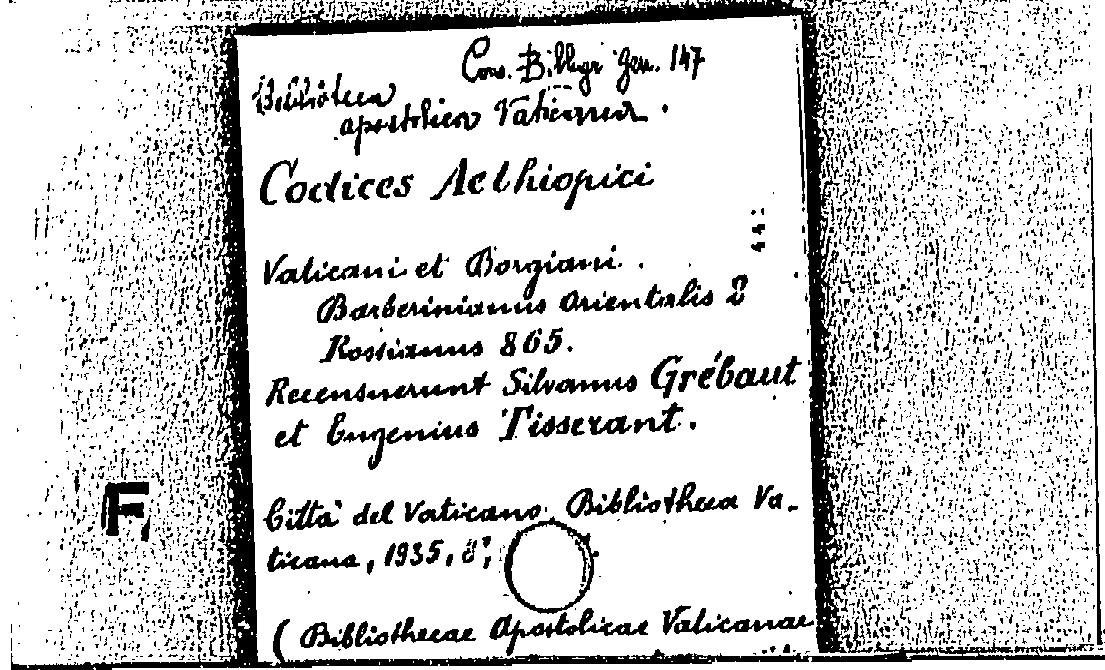 Cons. Bibligr Gen. 147
Biblioteca
apostolica Vaticana.
Codices Aethiopici
Vaticani et Borgiani.
Barberinianus orientalis 2
Rossianus 865.
Recensuerunt Silvanus Grébaut
et Eugenius Tisserant.
Città del Vaticano, Bibliotheca Va-
ticana, 1935, 8°,
( Bibliothecae Apostolicae Vaticanae
F